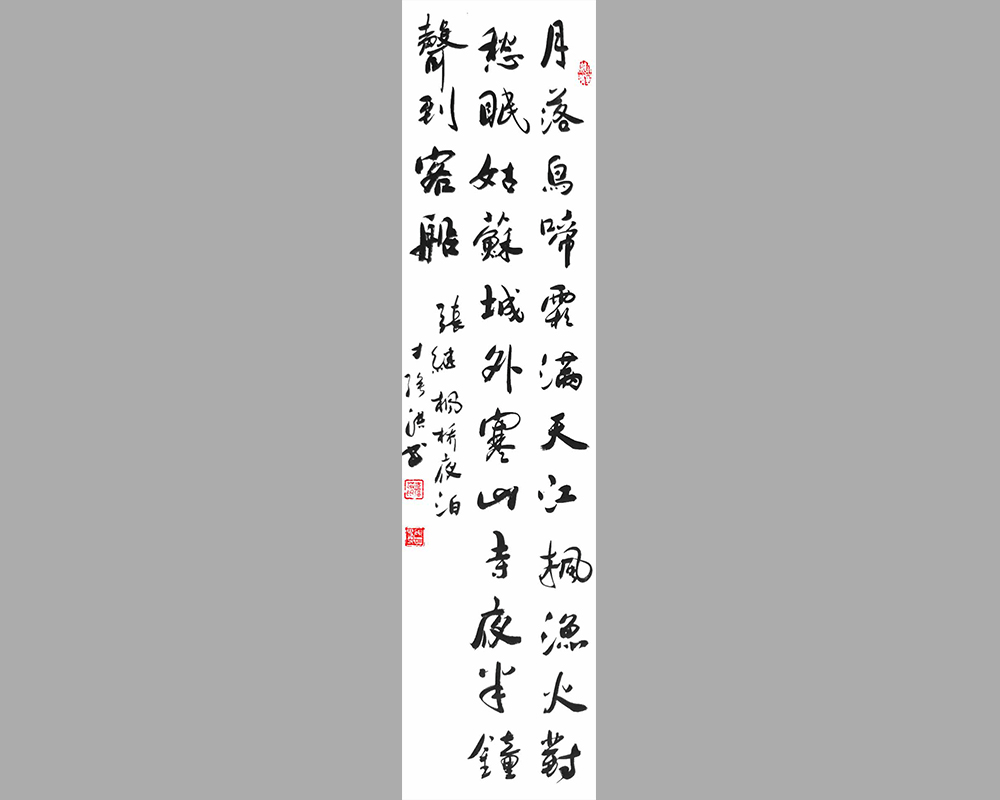 月落烏啼霜滿天江楓漁火對
愁眠姑蘇城外寒山寺夜半鐘
聲到客船
張继楓橋夜泊
书